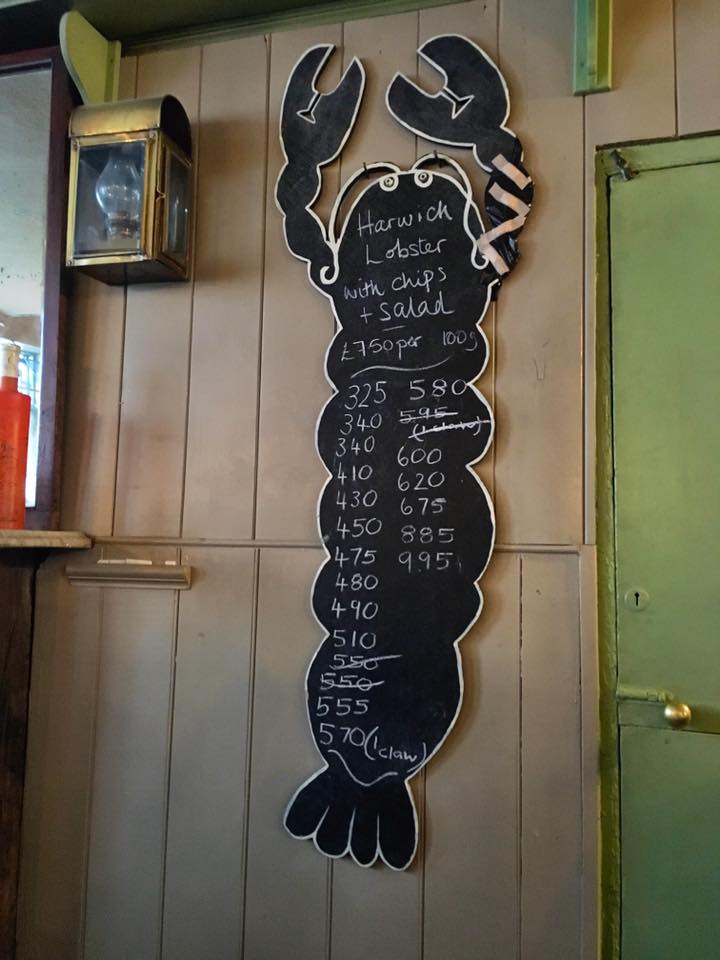 Harwich
Lobster
with chips
+ salad
£7.50 per 100g
325
340
340
410
430
450
475
480
490
510
550
550
555
570 (1 claw)
580
595
(1 claw)
600
620
675
885
995